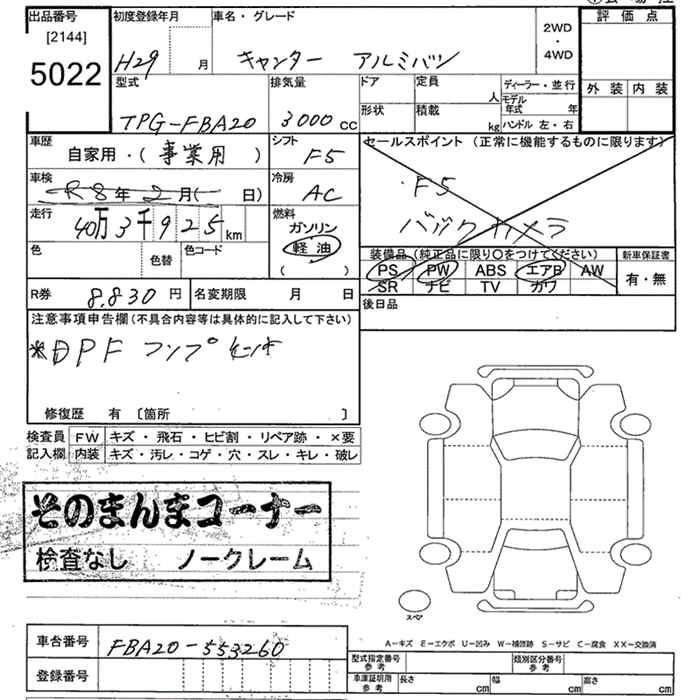 出品番号 初度登録年月 車名・グレード 評価点
[2144]
5022 H29 月 キャンター アルミバン 2WD・4WD
型式 排気量 ドア 定員 人 ディーラー・並行 外装 内装
TPG-FBA20 3000 cc 形状 積載 kg モデル年式 年
ハンドル 左・右
車歴 自家用・(事業用) シフト F5 セールスポイント (正常に機能するものに限ります)
車検 R8年2月( 日) 冷房 AC ・F5
走行 40万3千925 km 燃料 ガソリン バックカメラ
軽油
色 色替 色コード ( )
装備品(純正品に限り○をつけてください) 新車保証書
PS PW ABS エアB AW 有・無
SR ナビ TV カワ
R券 8,830 円 名変期限 月 日 後日品
注意事項申告欄(不具合内容等は具体的に記入して下さい)
※DPF
修復歴 有 [箇所 ]
検査員 FW キズ・飛石・ヒビ割・リペア跡・×要
記入欄 内装 キズ・汚レ・コゲ・穴・スレ・キレ・破レ
そのまんまコーナー
検査なし ノークレーム
スペア
A-キズ E-エクボ U-凹み W-補修跡 S-サビ C-腐食 XX-交換済
車台番号 FBA20-553260
型式指定番号 参考 類別区分番号 参考
登録番号 車庫証明用 参考 長さ cm 幅 cm 高さ cm